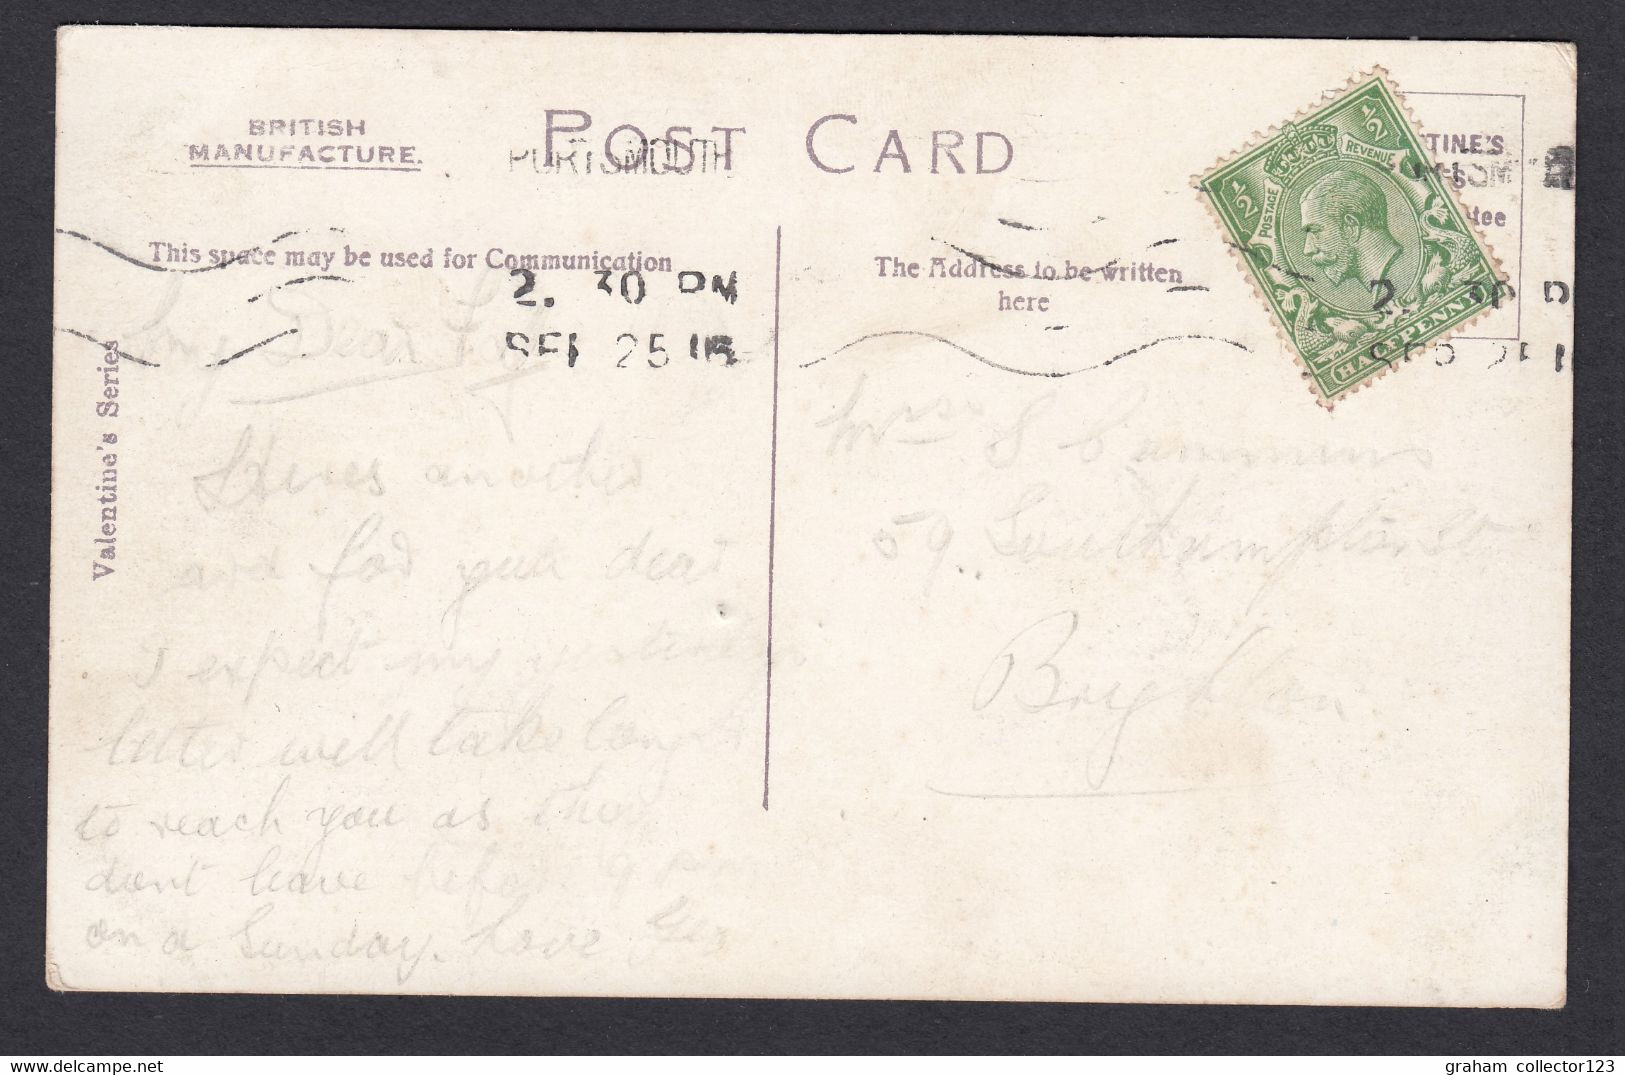 BRITISH
MANUFACTURE.
POST CARD
PORTSMOUTH
This space may be used for Communication
2. 30 PM
SEP 25
The Address to be written
here
Valentine's Series
½ ½
POSTAGE REVENUE
HALFPENNY
TINE'S
2. 30 P
My Dear
Heres another
and for you dear
I expect my yesterdays
letter will take long
to reach you as they
dont leave before 9 pm
on a Sunday. Love Geo
Mrs S Cummins
59. Southampton St
Brighton
graham collector123